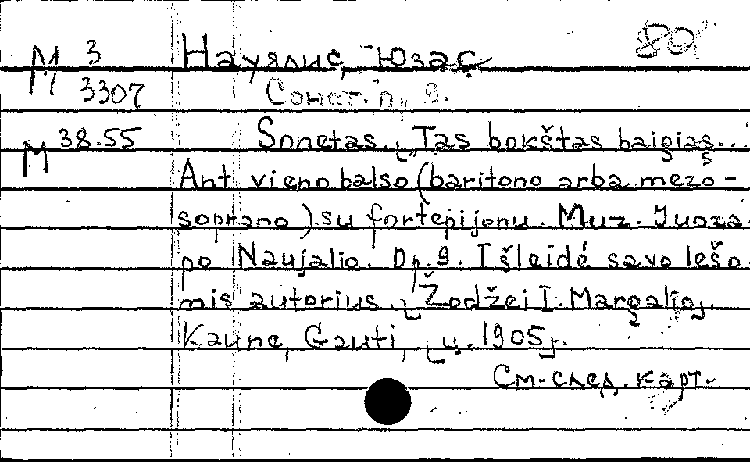 М 3 Науялис, Юзас 80
3307 Сонет. п., 9.
М 38.55 Sonetas. [„Tas bokštas baigias...
Ant vieno balso (baritono arba mezo-
soprano) su fortepijonu. Muz. Juoza-
po Naujalio. Op. 9. Išleidė savo lešo-
mis autorius. [Žodžei I. Margalio].
Kaune, Gauti, [ц. 1905].
См. след. карт.